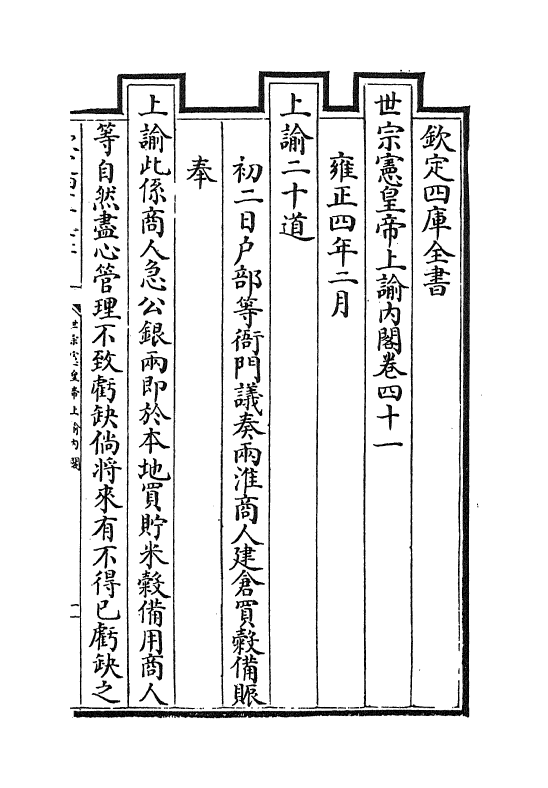 欽定四庫全書
世宗憲皇帝上諭内閣卷四十一
雍正四年二月
上諭二十道
初二日户部等衙門議奏兩淮商人建倉買穀備賑
奉
上諭此係商人急公銀兩即於本地買貯米穀備用商人
等自然盡心管理不致虧缺倘將來有不得已虧缺之
世宗憲皇帝上諭内閣